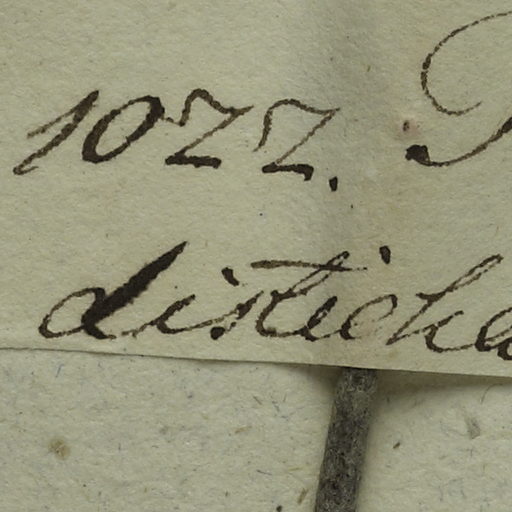 1022. P
disticha